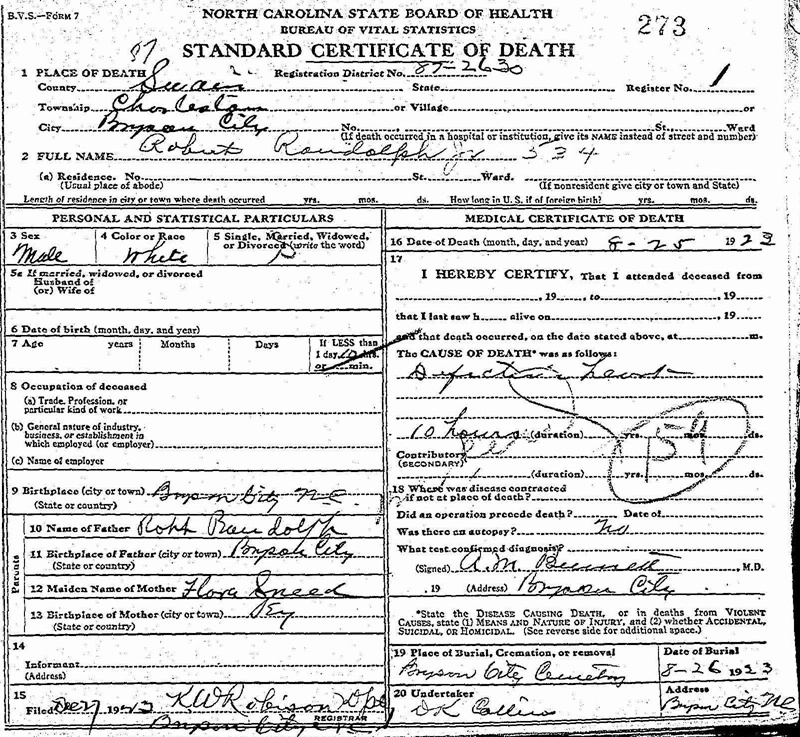 B.V.S.—FORM 7
NORTH CAROLINA STATE BOARD OF HEALTH
BUREAU OF VITAL STATISTICS
273
STANDARD CERTIFICATE OF DEATH
87
1 PLACE OF DEATH Registration District No. 87-2630
County Swain State Register No. 1
Township Charleston or Village or
City Bryson City No. St. Ward
(If death occurred in a hospital or institution, give its NAME instead of street and number)
2 FULL NAME Robert Randolph Jr 534
(a) Residence. No. St. Ward.
(Usual place of abode) (If nonresident give city or town and State)
Length of residence in city or town where death occurred yrs. mos. ds. How long in U.S. if of foreign birth? yrs. mos. ds.
PERSONAL AND STATISTICAL PARTICULARS
3 Sex 4 Color or Race 5 Single, Married, Widowed, or Divorced (write the word)
Male White
5a If married, widowed, or divorced
Husband of
(or) Wife of
6 Date of birth (month, day, and year)
7 Age years Months Days If LESS than
1 day, 10 hrs.
or min.
8 Occupation of deceased
(a) Trade, Profession, or
particular kind of work
(b) General nature of industry,
business, or establishment in
which employed (or employer)
(c) Name of employer
9 Birthplace (city or town) Bryson City N.C.
(State or country)
Parents
10 Name of Father Robt Randolph
11 Birthplace of Father (city or town) Bryson City
(State or country)
12 Maiden Name of Mother Flora Sneed
13 Birthplace of Mother (city or town)
(State or country)
14
Informant
(Address)
15
Filed 1923 K W Robison
REGISTRAR
Bryson City
MEDICAL CERTIFICATE OF DEATH
16 Date of Death (month, day, and year) 8-25 1923
17
I HEREBY CERTIFY, That I attended deceased from
, 19 , to , 19
that I last saw h alive on , 19
and that death occurred, on the date stated above, at m.
The CAUSE OF DEATH* was as follows:
Defective heart
10 hours (duration) yrs. mos. ds.
159
Contributory
(SECONDARY)
(duration) yrs. mos. ds.
18 Where was disease contracted
if not at place of death?
Did an operation precede death? Date of
Was there an autopsy? No
What test confirmed diagnosis?
(Signed) A. M. Bennett, M.D.
, 19 (Address) Bryson City
*State the DISEASE CAUSING DEATH, or in deaths from VIOLENT
CAUSES, state (1) MEANS AND NATURE OF INJURY, and (2) whether ACCIDENTAL,
SUICIDAL, OR HOMICIDAL. (See reverse side for additional space.)
19 Place of Burial, Cremation, or removal Date of Burial
Bryson City Cemetery 8-26 1923
20 Undertaker Address
DK Collins Bryson City NC